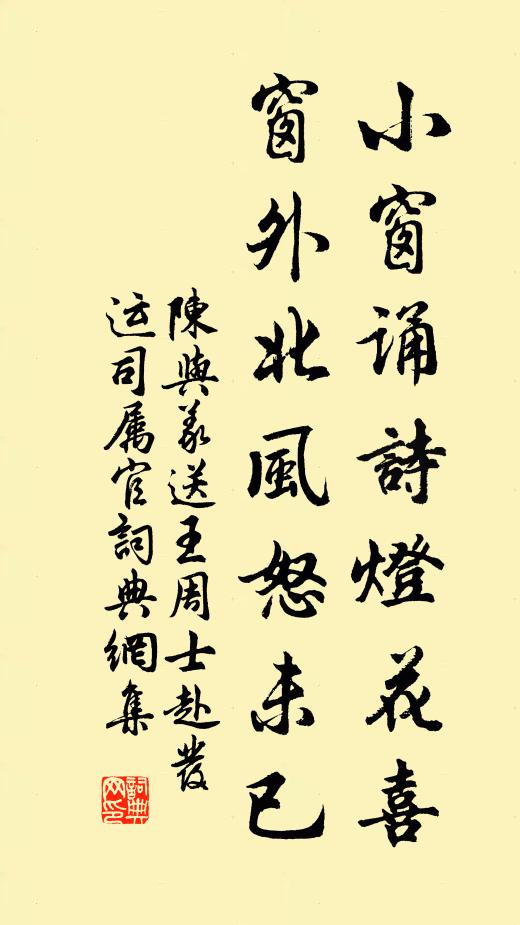 小窗诵詩燈花喜
窗外北風怒未已
陳與義送王周士赴發
运司属官詞典網集
詞典網印